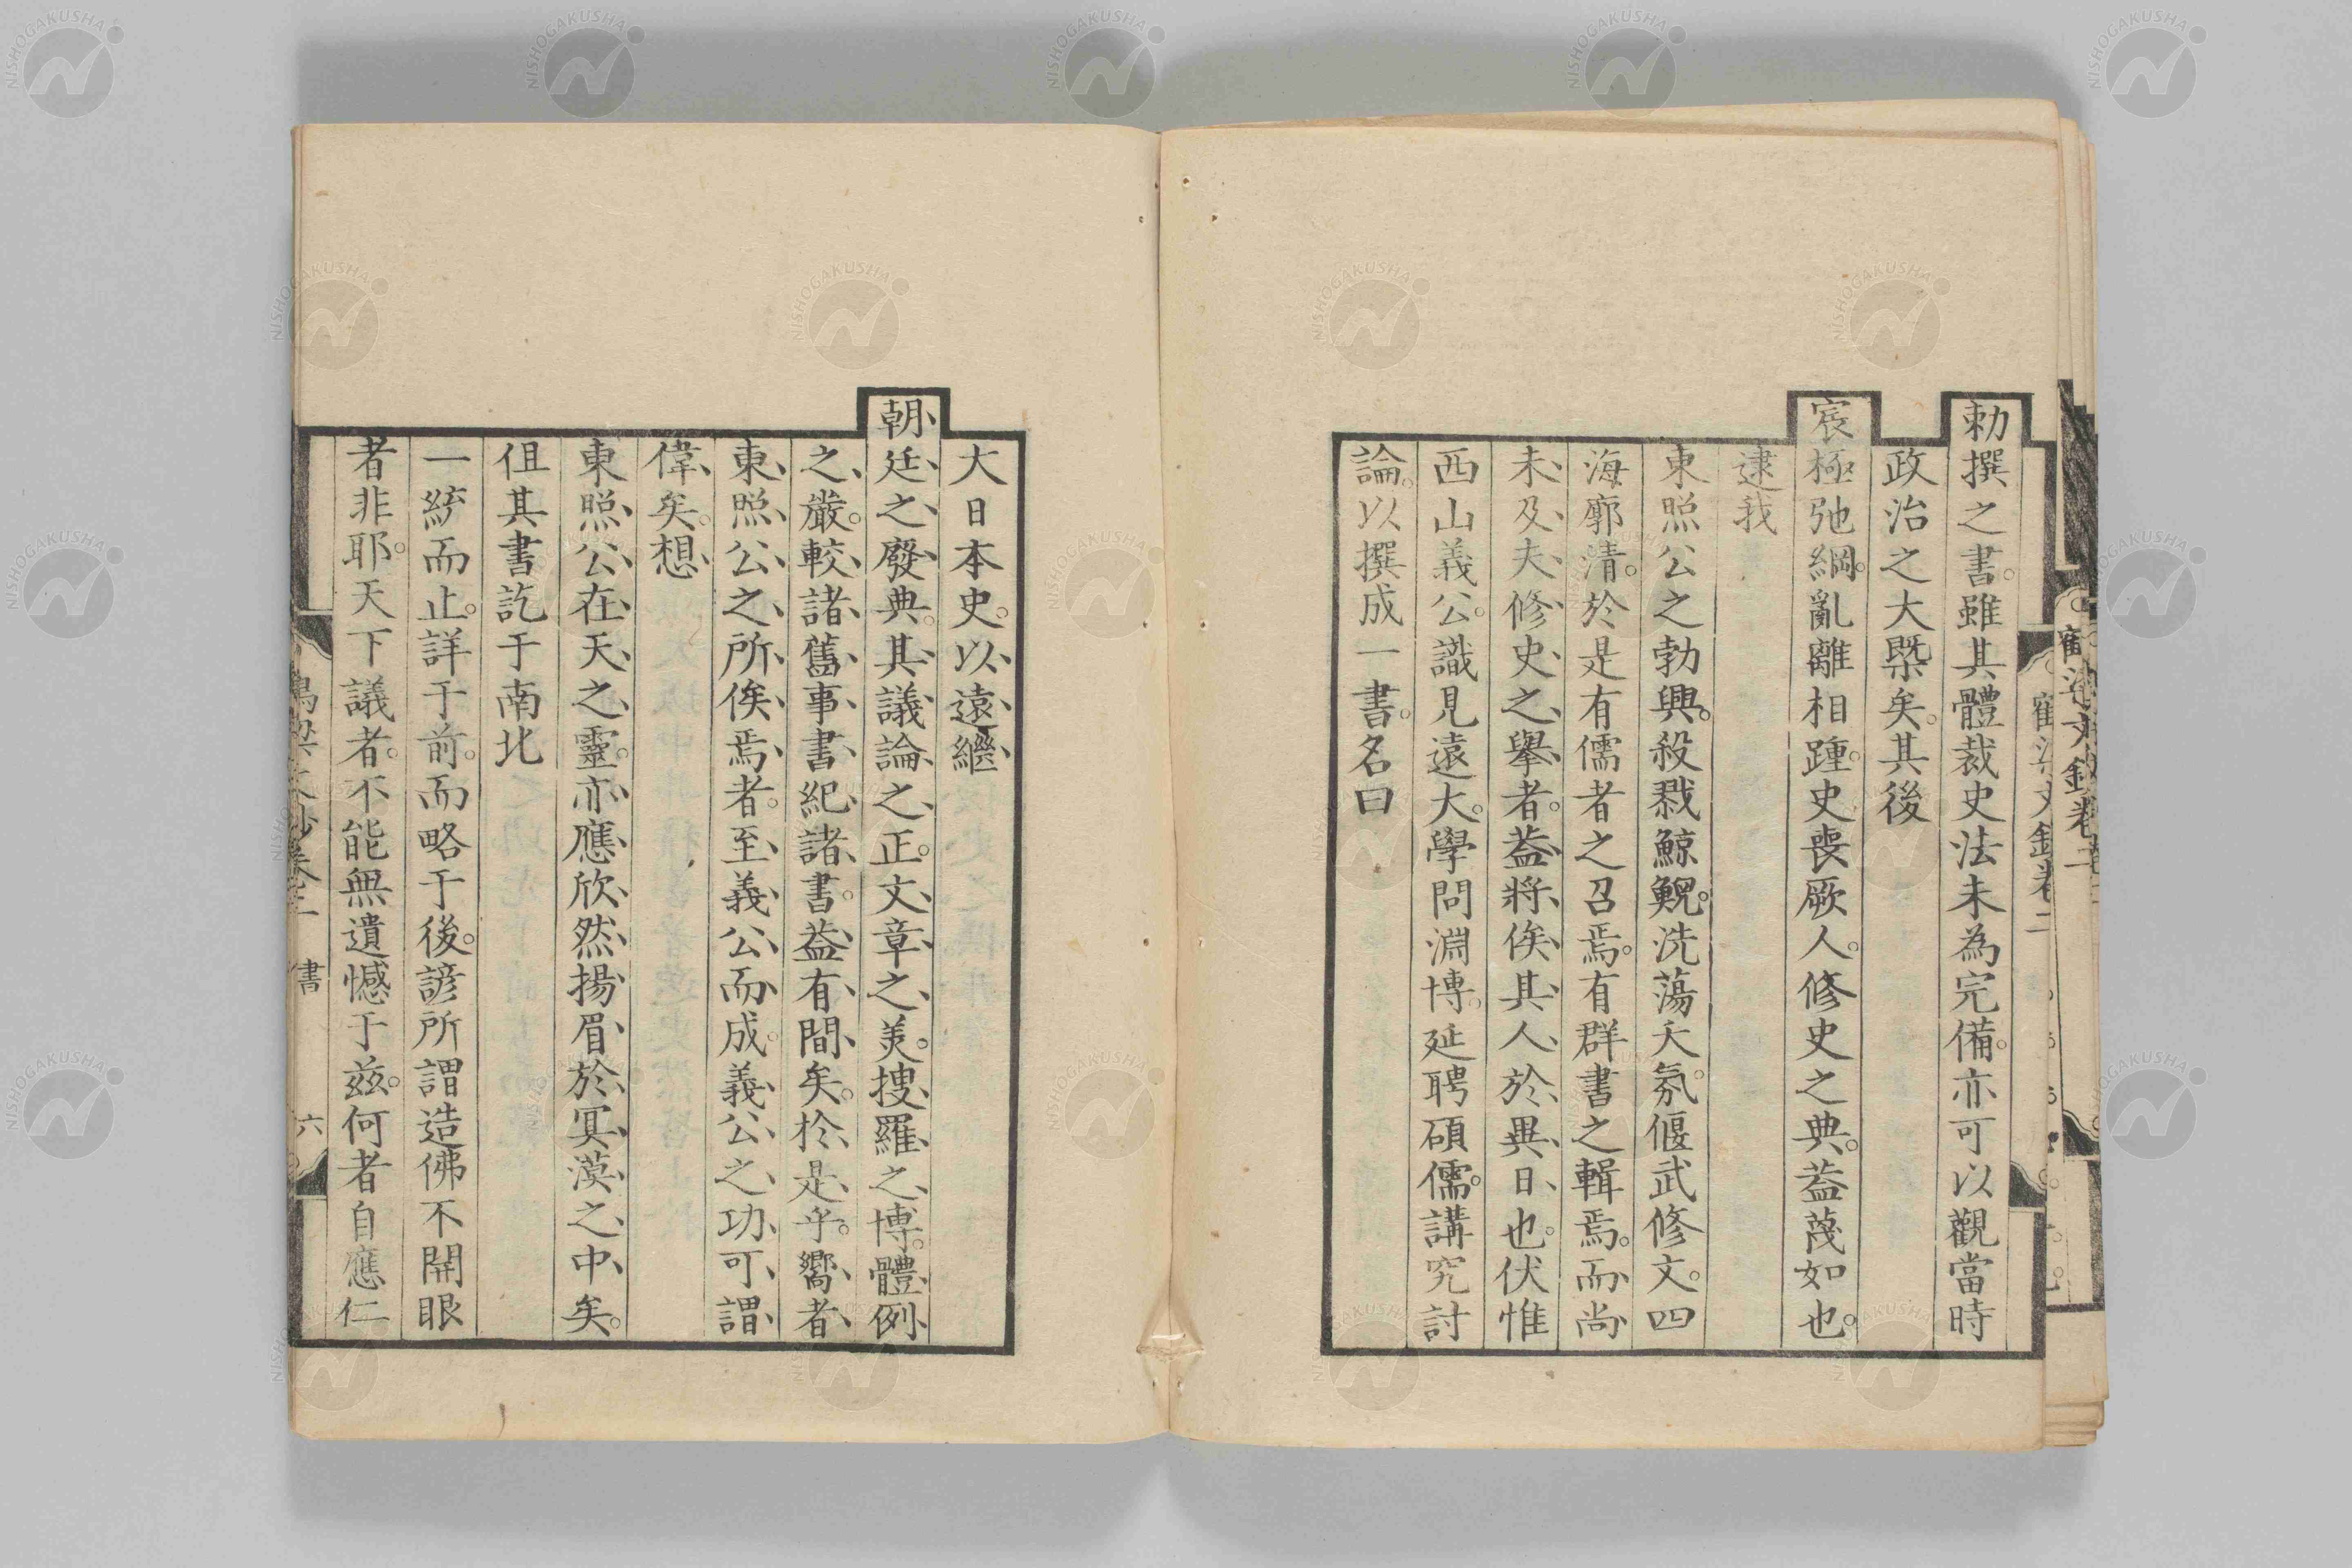 勅撰之書。雖其體裁史法未為完備。亦可以觀當時
政治之大槩矣。其後
宸極弛綱。亂離相踵。史喪厥人。修史之典。蓋蔑如也。
逮我
東照公之勃興。殺戮鯨鯢。洗蕩夭氛。偃武修文。四
海廓清。於是有儒者之召焉。有群書之輯焉。而尚
未及夫修史之擧者。蓋將俟其人於異日也。伏惟
西山義公。識見遠大。學問淵博。延聘碩儒。講究討
論。以撰成一書。名曰
大日本史。以遠繼
朝廷之廢典。其議論之正。文章之美。搜羅之博。體例
之嚴。較諸舊事書紀諸書。蓋有間矣。於是乎。嚮者
東照公之所俟焉者。至義公而成。義公之功可謂
偉矣。想
東照公在天之靈。亦應欣然揚眉於冥漠之中矣。
但其書訖于南北
一統而止。詳于前。而略于後。諺所謂造佛不開眼
者非耶。天下議者。不能無遺憾于玆。何者自應仁
書
六
NISHOGAKUSHA